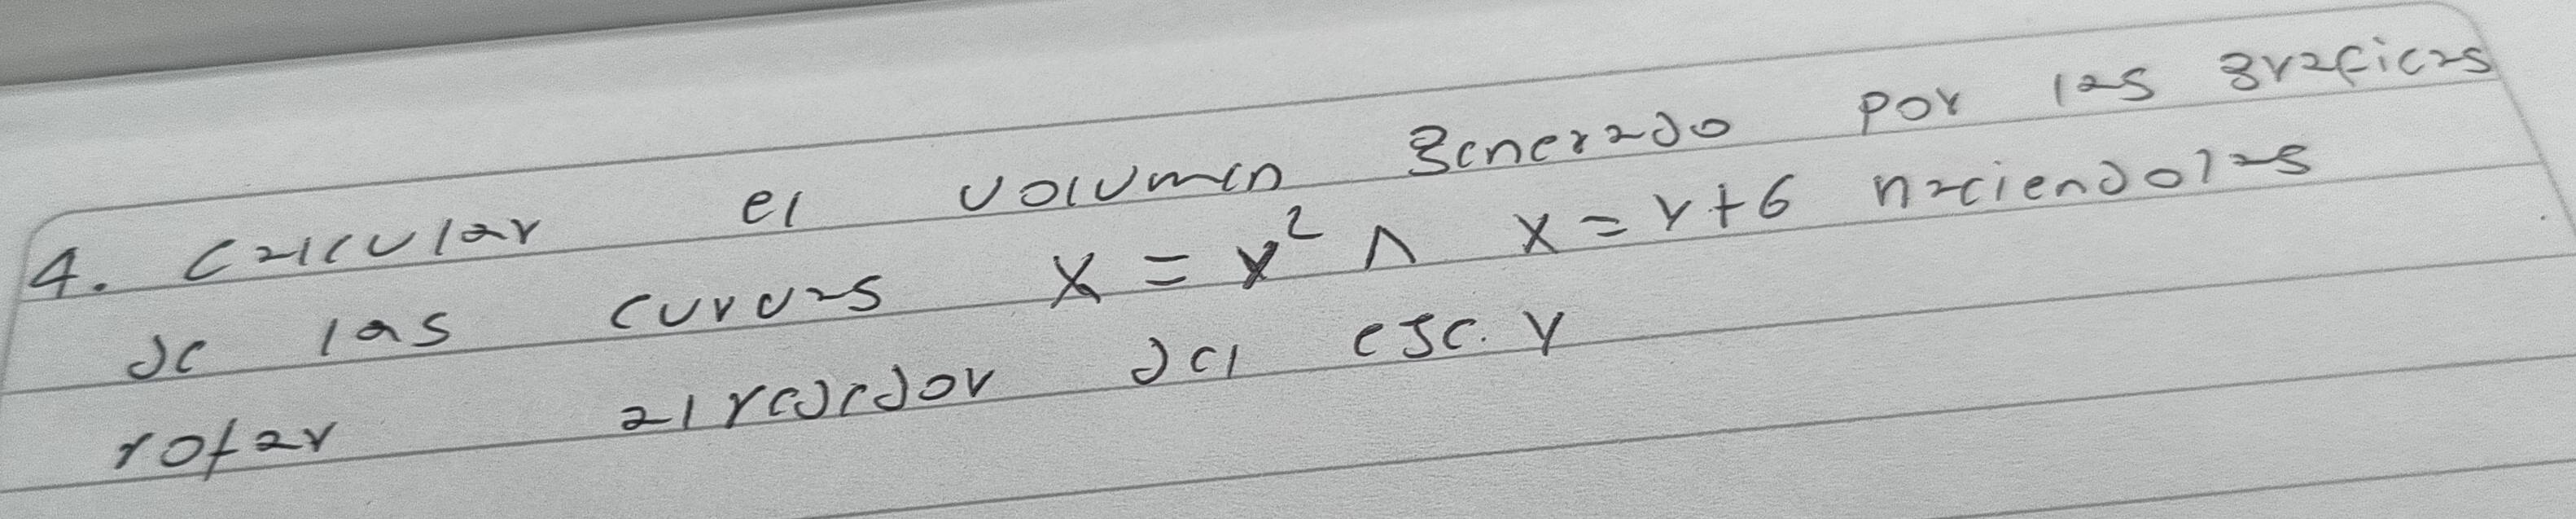 4. Calcular el volumen generado por las graficas
de las curvas x = y² ∧ x = y+6 haciendolas
rotar alrededor del eje. y